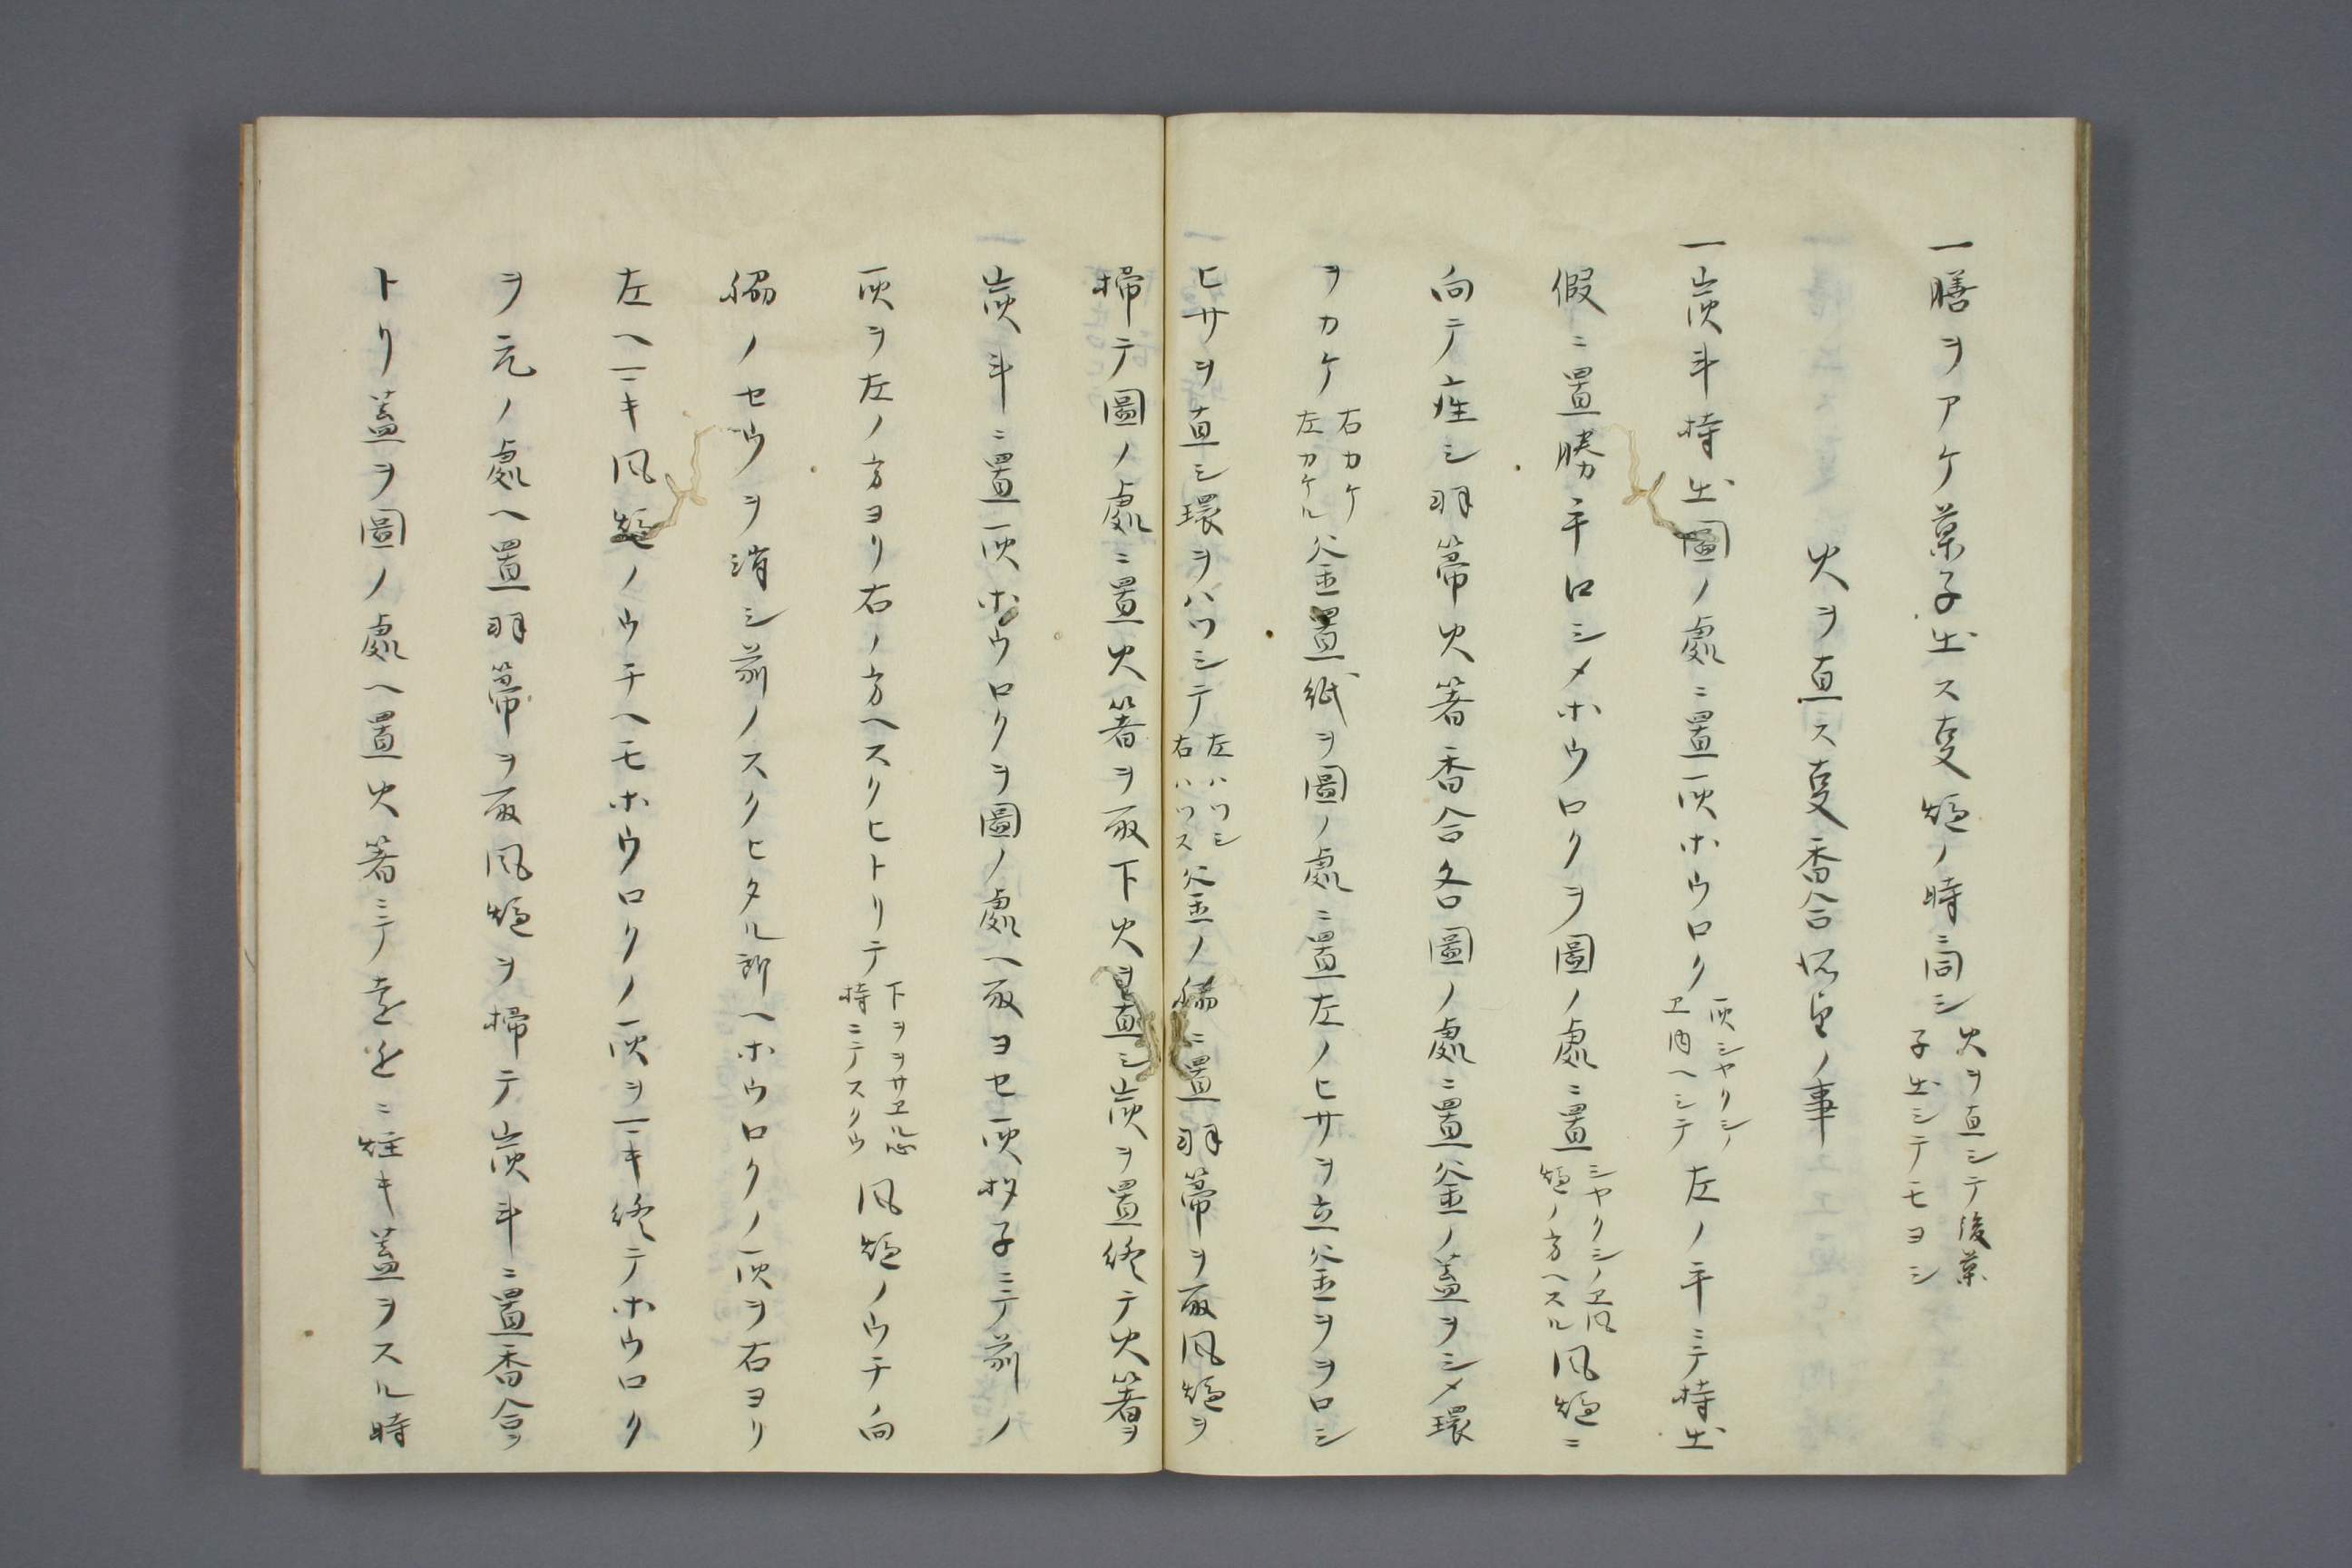 一膳ヲアケ菓子出ス事爐ノ時ニ同シ火ヲ直シテ後菓子出シテモヨシ
火ヲ直ス事香合所望ノ事
一炭斗持出圖ノ處ニ置灰ホウロク灰シャクシノヱ内ヘシテ左ノ手ニテ持出
假ニ置勝手口シメホウロクヲ圖ノ處ニ置シャクシノヱ風爐ノ方ヘスル風爐ニ
向テ座シ羽箒火箸香合各圖ノ處ニ置釜ノ蓋ヲシメ環
ヲカケ右カケ左カケル釜置紙ヲ圖ノ處ニ置左ノヒサヲ立釜ヲヲロシ
ヒサヲ直シ環ヲハツシテ左ハツシ右ハツス釜ノ脇ニ置羽箒ヲ取風爐ヲ
掃テ圖ノ處ニ置火箸ヲ取下火ヲ直シ炭ヲ置終テ火箸ヲ
炭斗ニ置灰ホウロクヲ圖ノ處ヘ取ヨセ灰杓子ニテ前ノ
灰ヲ左ノ方ヨリ右ノ方ヘスクヒトリテ下ヲヲサヱル心持ニテスクウ風爐ノウチ向
脇ノセウヲ消シ前ノスクヒタル所ヘホウロクノ灰ヲ右ヨリ
左ヘマキ風爐ノウチヘモホウロクノ灰ヲマキ終テホウロク
ヲ元ノ處ヘ置羽箒ヲ取風爐ヲ掃テ炭斗ニ置香合ヲ
トリ蓋ヲ圖ノ處ヘ置火箸ニテ遠近ニ炷キ蓋ヲスル時